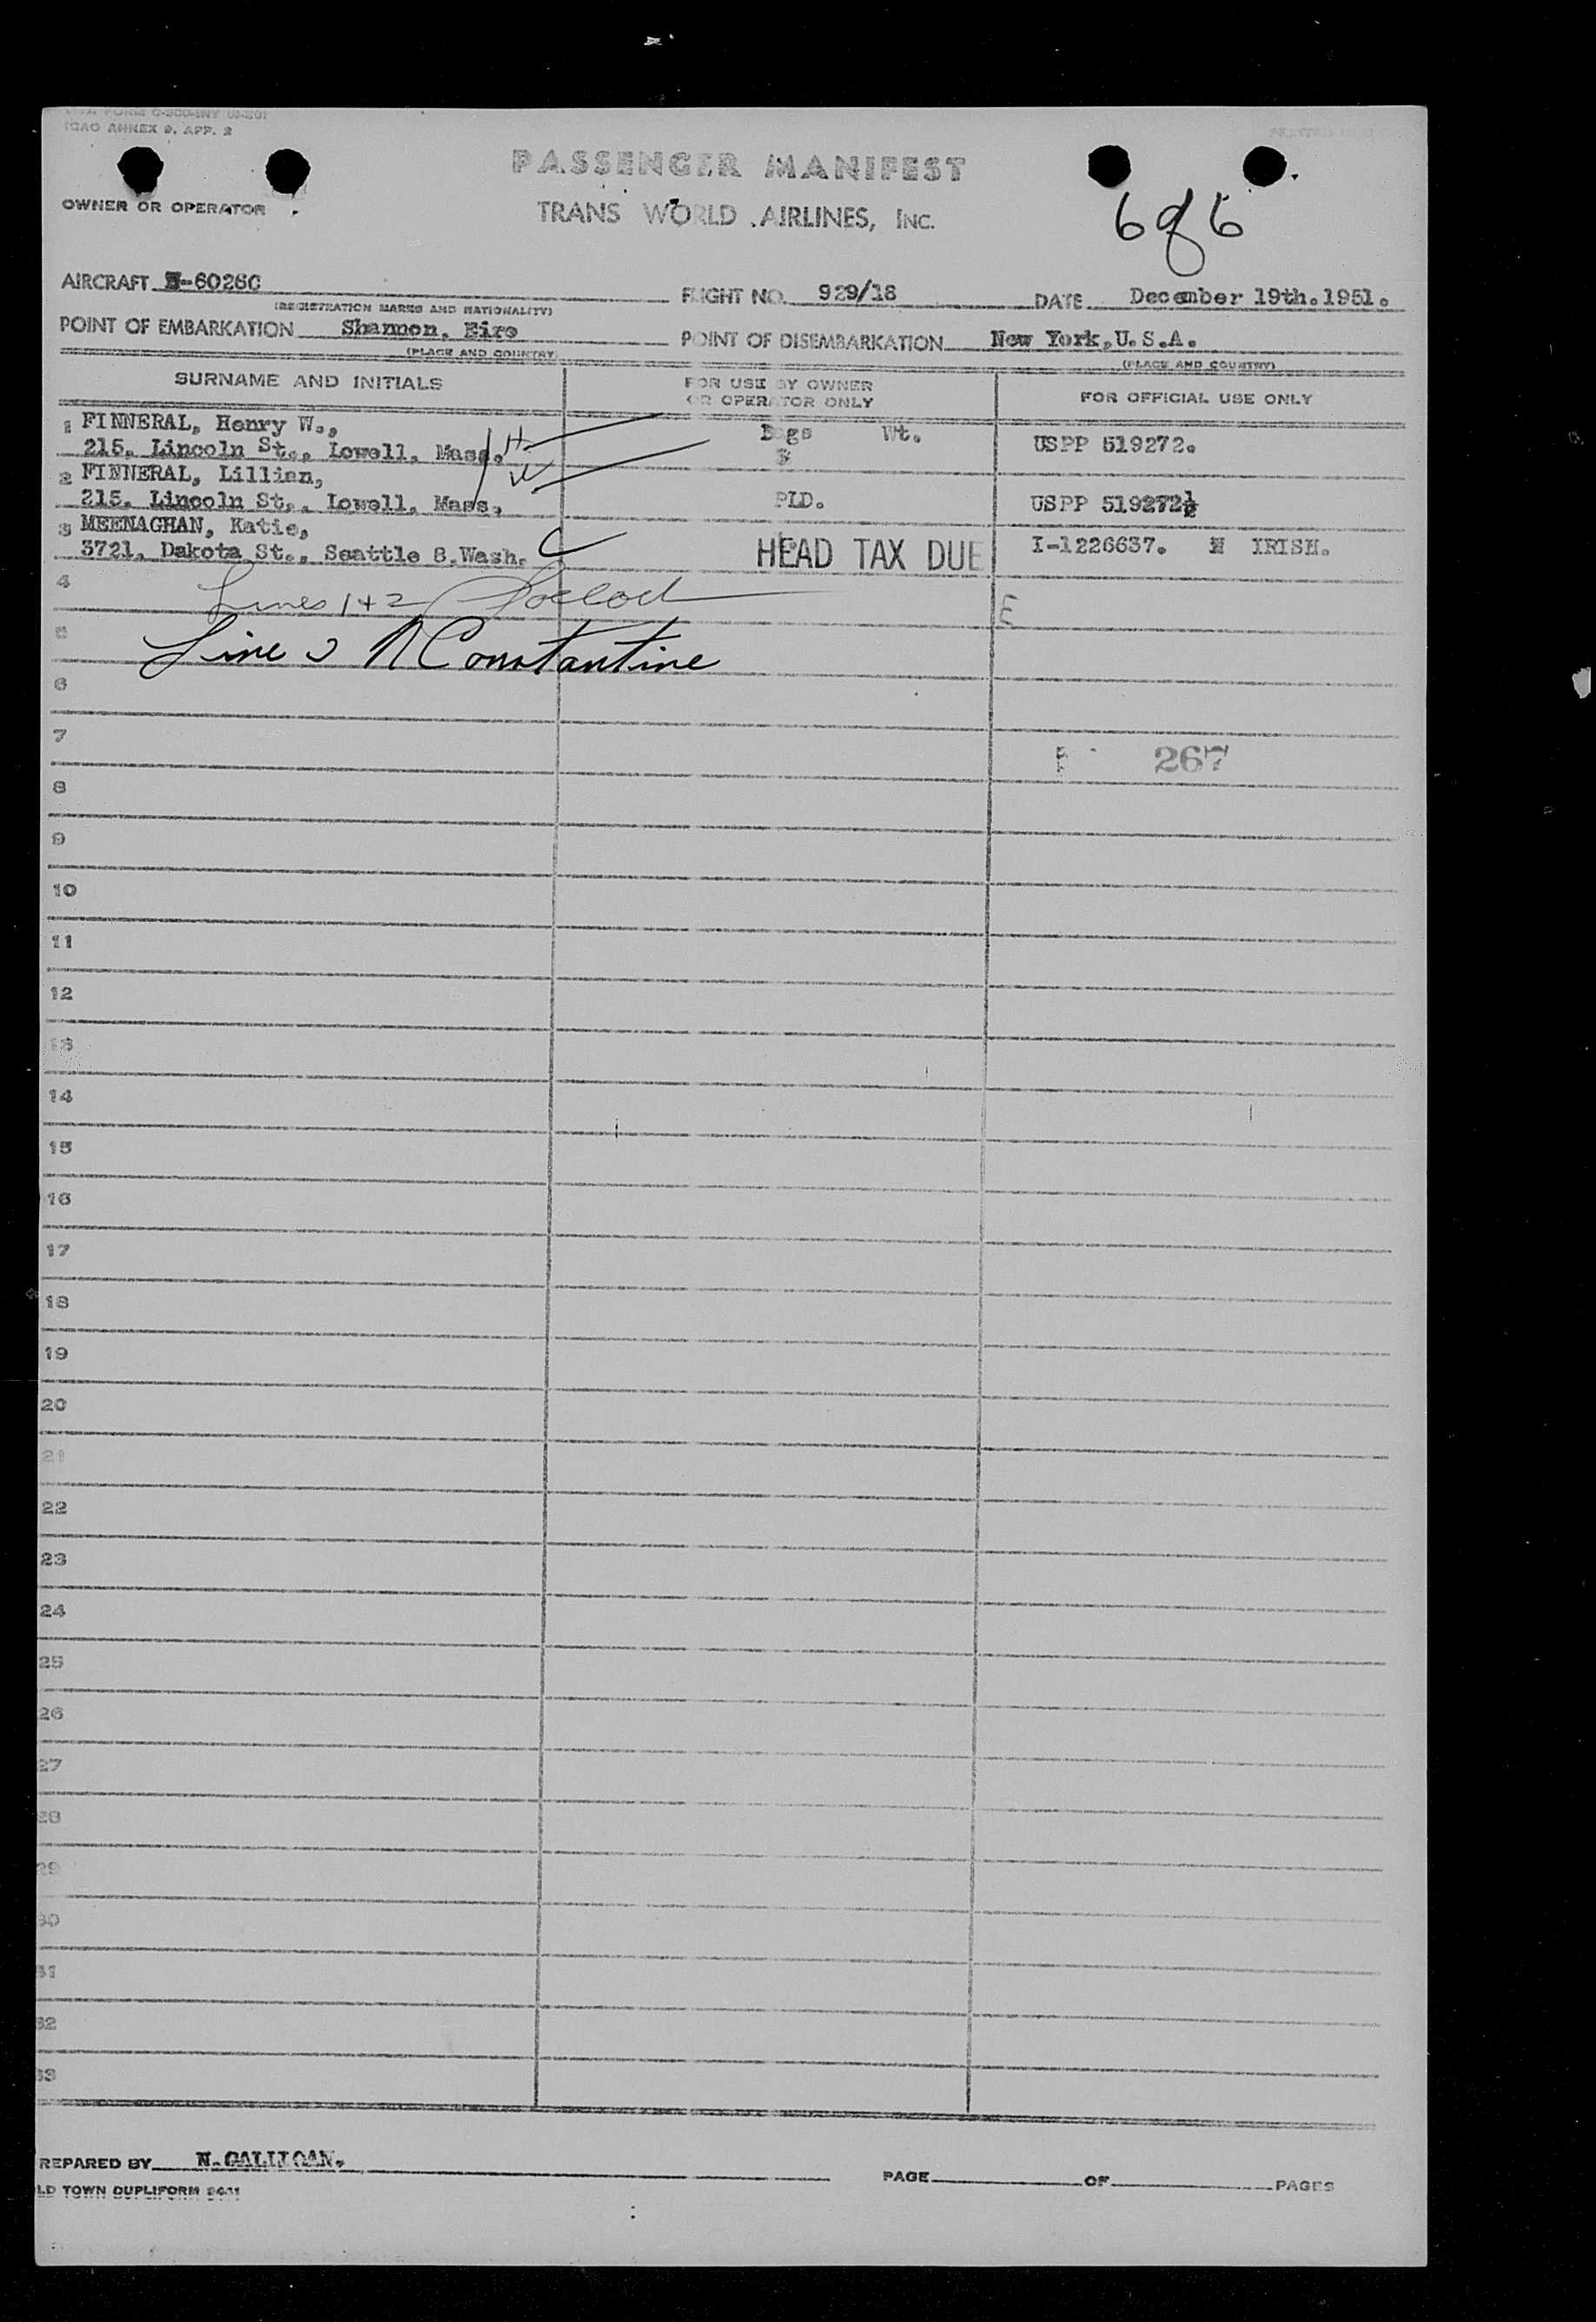 ICAO ANNEX 9, APP. 2
PASSENGER MANIFEST
OWNER OR OPERATOR
TRANS WORLD AIRLINES, INC.
6 of 6
AIRCRAFT N-6026C FLIGHT NO. 929/18 DATE December 19th.1951.
(REGISTRATION MARKS AND NATIONALITY)
POINT OF EMBARKATION Shannon, Eire POINT OF DISEMBARKATION New York,U.S.A.
(PLACE AND COUNTRY) (PLACE AND COUNTRY)
SURNAME AND INITIALS FOR USE BY OWNER OR OPERATOR ONLY FOR OFFICIAL USE ONLY
1 FINNERAL, Henry W., Bags Wt.
215, Lincoln St., Lowell, Mass. H 3 USPP 519272.
2 FINNERAL, Lillian, W
215, Lincoln St., Lowell, Mass. PLD. USPP 519272½
3 MEENAGHAN, Katie,
3721, Dakota St., Seattle 8.Wash. HEAD TAX DUE I-1226637. N IRISH.
4 Lines 1+2
E
5 Line 3 Constantine
6
7
267
8
9
10
11
12
13
14
15
16
17
18
19
20
21
22
23
24
25
26
27
28
29
30
31
32
33
REPARED BY N.GALLIGAN. PAGE OF PAGES
LD TOWN DUPLIFORM